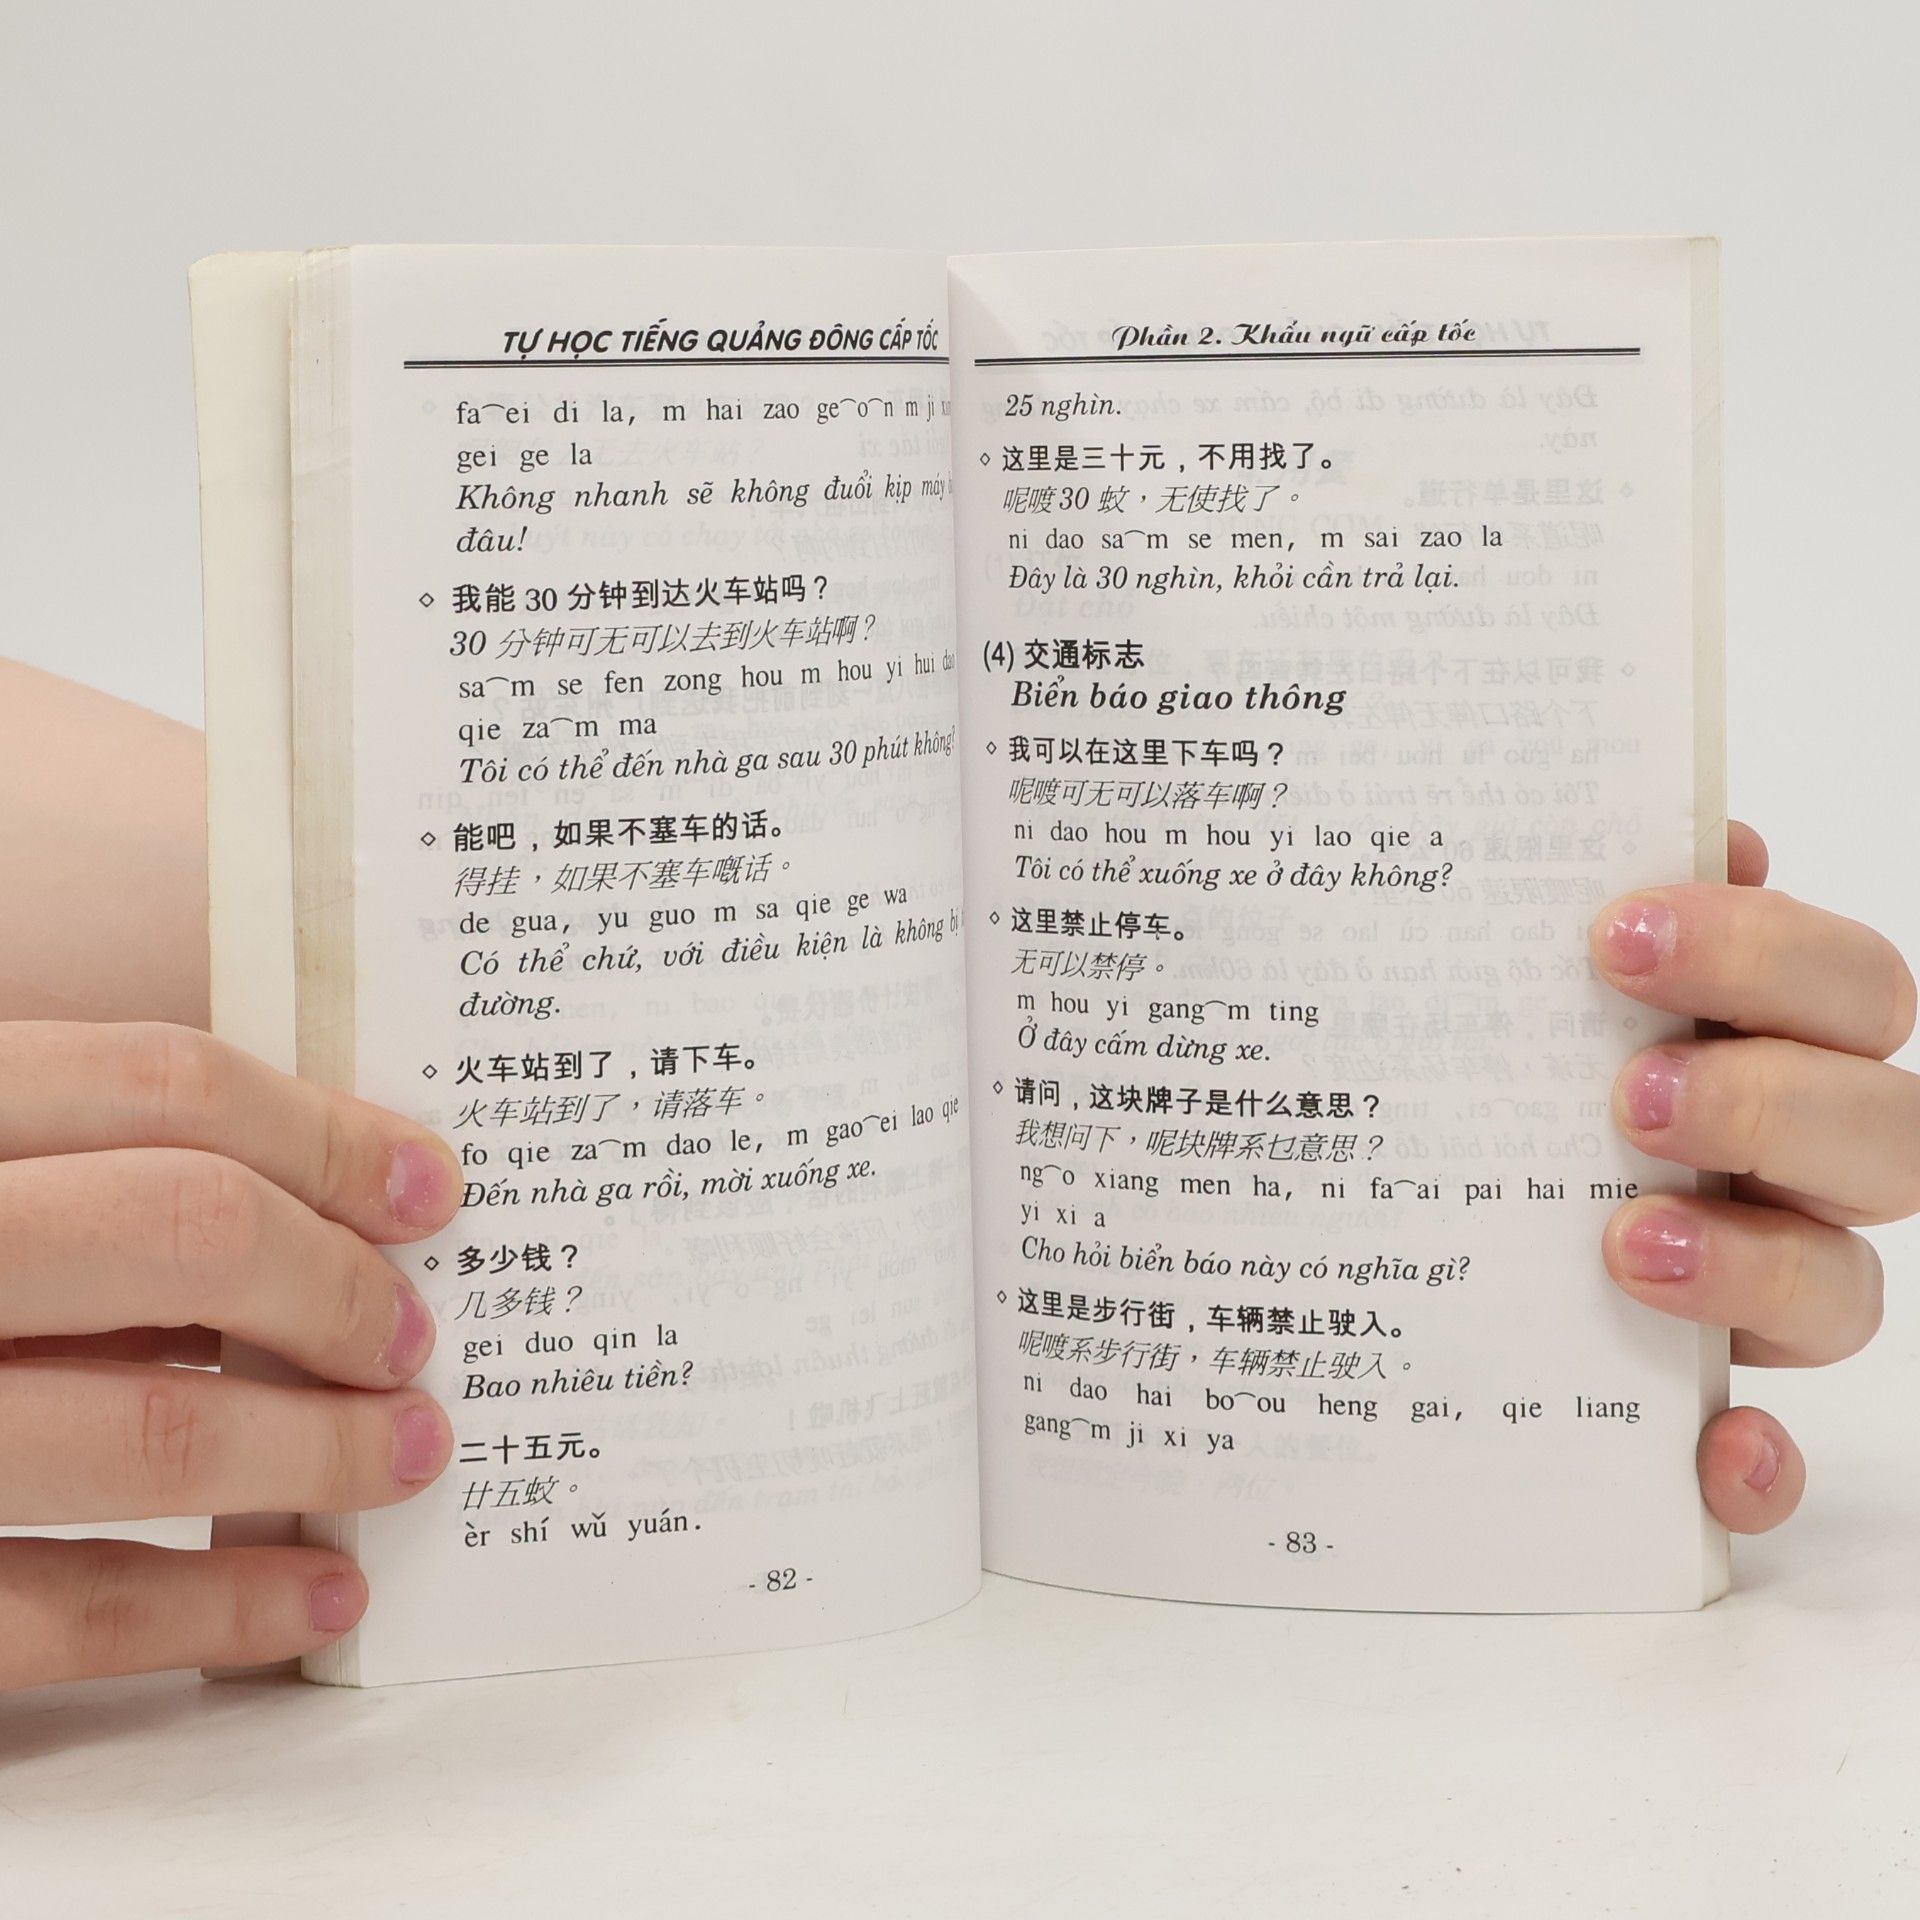 TỰ HỌC TIẾNG QUẢNG ĐÔNG CẤP TỐC
fa⁀ei di la, m hai zao ge⁀o⁀n m ji
gei ge la
Không nhanh sẽ không đuổi kịp máy
đâu!
◇ 我能 30 分钟到达火车站吗？
30 分钟可无可以去到火车站啊？
sa⁀m se fen zong hou m hou yi hui dao
qie za⁀m ma
Tôi có thể đến nhà ga sau 30 phút không?
◇ 能吧，如果不塞车的话。
得挂，如果不塞车嘅话。
de gua, yu guo m sa qie ge wa
Có thể chứ, với điều kiện là không
đường.
◇ 火车站到了，请下车。
火车站到了，请落车。
fo qie za⁀m dao le, m gao⁀ei lao qie
Đến nhà ga rồi, mời xuống xe.
◇ 多少钱？
几多钱？
gei duo qin la
Bao nhiêu tiền?
二十五元。
廿五蚊。
èr shí wǔ yuán.
- 82 -
Phần 2. Khẩu ngữ cấp tốc
25 nghìn.
◇ 这里是三十元，不用找了。
呢喥30 蚊，无使找了。
ni dao sa⁀m se men, m sai zao la
Đây là 30 nghìn, khỏi cần trả lại.
(4) 交通标志
Biển báo giao thông
◇ 我可以在这里下车吗？
呢喥可无可以落车啊？
ni dao hou m hou yi lao qie a
Tôi có thể xuống xe ở đây không?
◇ 这里禁止停车。
无可以禁停。
m hou yi gang⁀m ting
Ở đây cấm dừng xe.
◇ 请问，这块牌子是什么意思？
我想问下，呢块牌系乜意思？
ng⁀o xiang men ha, ni fa⁀ai pai hai mie
yi xi a
Cho hỏi biển báo này có nghĩa gì?
◇ 这里是步行街，车辆禁止驶入。
呢喥系步行街，车辆禁止驶入。
ni dao hai bo⁀ou heng gai, qie liang
gang⁀m ji xi ya
- 83 -